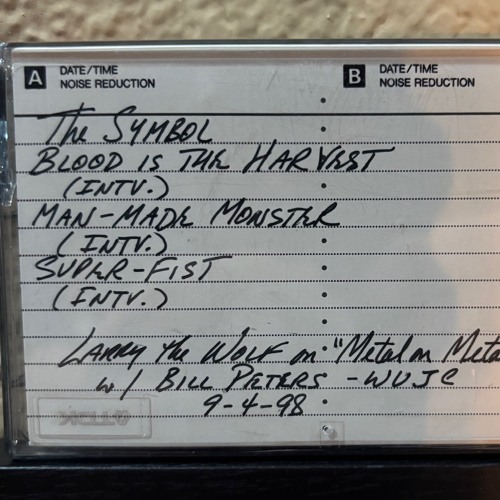 A DATE/TIME
NOISE REDUCTION
B DATE/TIME
NOISE REDUCTION
The SYMBOL
BLOOD IS THE HARVEST
(INTV.)
MAN-MADE MONSTER
(INTV.)
SUPER-FIST
(INTV.)
LARRY THE WOLF on "Metal on Meta
w/ BILL PETERS - WUJC
9-4-98
TDK